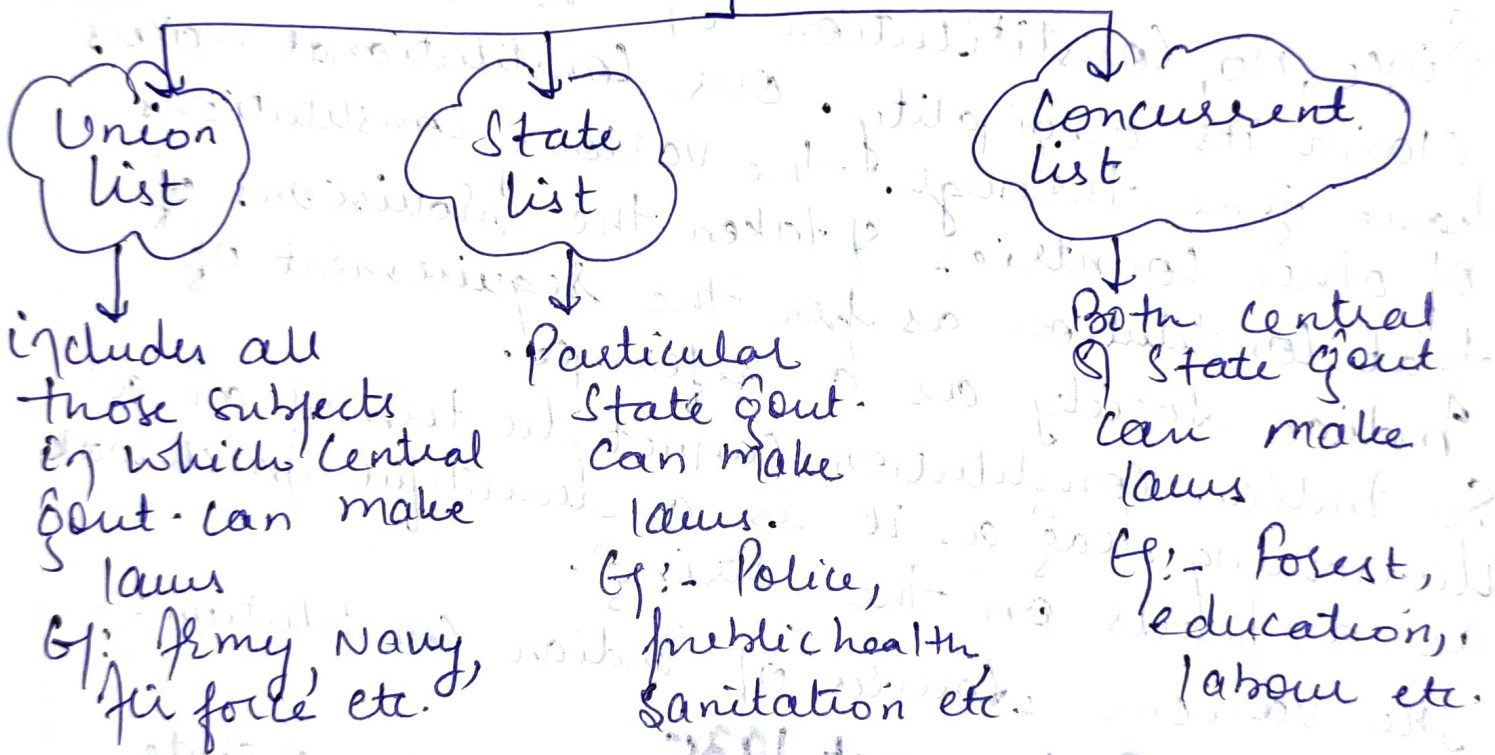 Union
list
includes all
those subjects
in which Central
govt. can make
laws
Eg: Army, Navy,
Air force etc.
State
list
Particular
State govt.
can make
laws.
Eg:- Police,
public health,
sanitation etc.
Concurrent
list
Both central
& State govt
can make
laws
Eg:- Forest,
education,
labour etc.